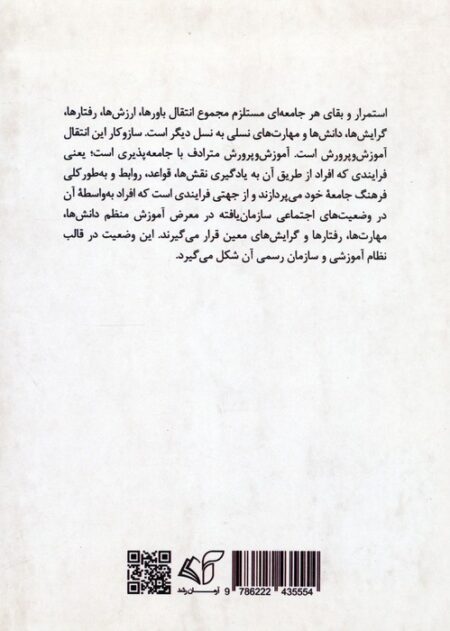 استمرار و بقای هر جامعه‌ای مستلزم مجموع انتقال باورها، ارزش‌ها، رفتارها،
گرایش‌ها، دانش‌ها و مهارت‌های نسلی به نسل دیگر است. سازوکار این انتقال
آموزش‌وپرورش است. آموزش‌وپرورش مترادف با جامعه‌پذیری است؛ یعنی
فرایندی که افراد از طریق آن به یادگیری نقش‌ها، قواعد، روابط و به‌طورکلی
فرهنگ جامعهٔ خود می‌پردازند و از جهتی فرایندی است که افراد به‌واسطهٔ آن
در وضعیت‌های اجتماعی سازمان‌یافته در معرض آموزش منظم دانش‌ها،
مهارت‌ها، رفتارها و گرایش‌های معین قرار می‌گیرند. این وضعیت در قالب
نظام آموزشی و سازمان رسمی آن شکل می‌گیرد.
آرمان رشد
9 786222 435554